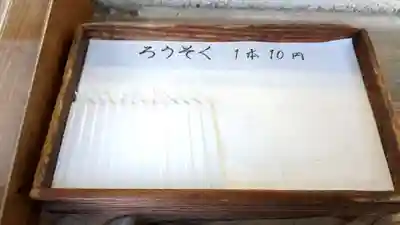 ろうそく 1本10円